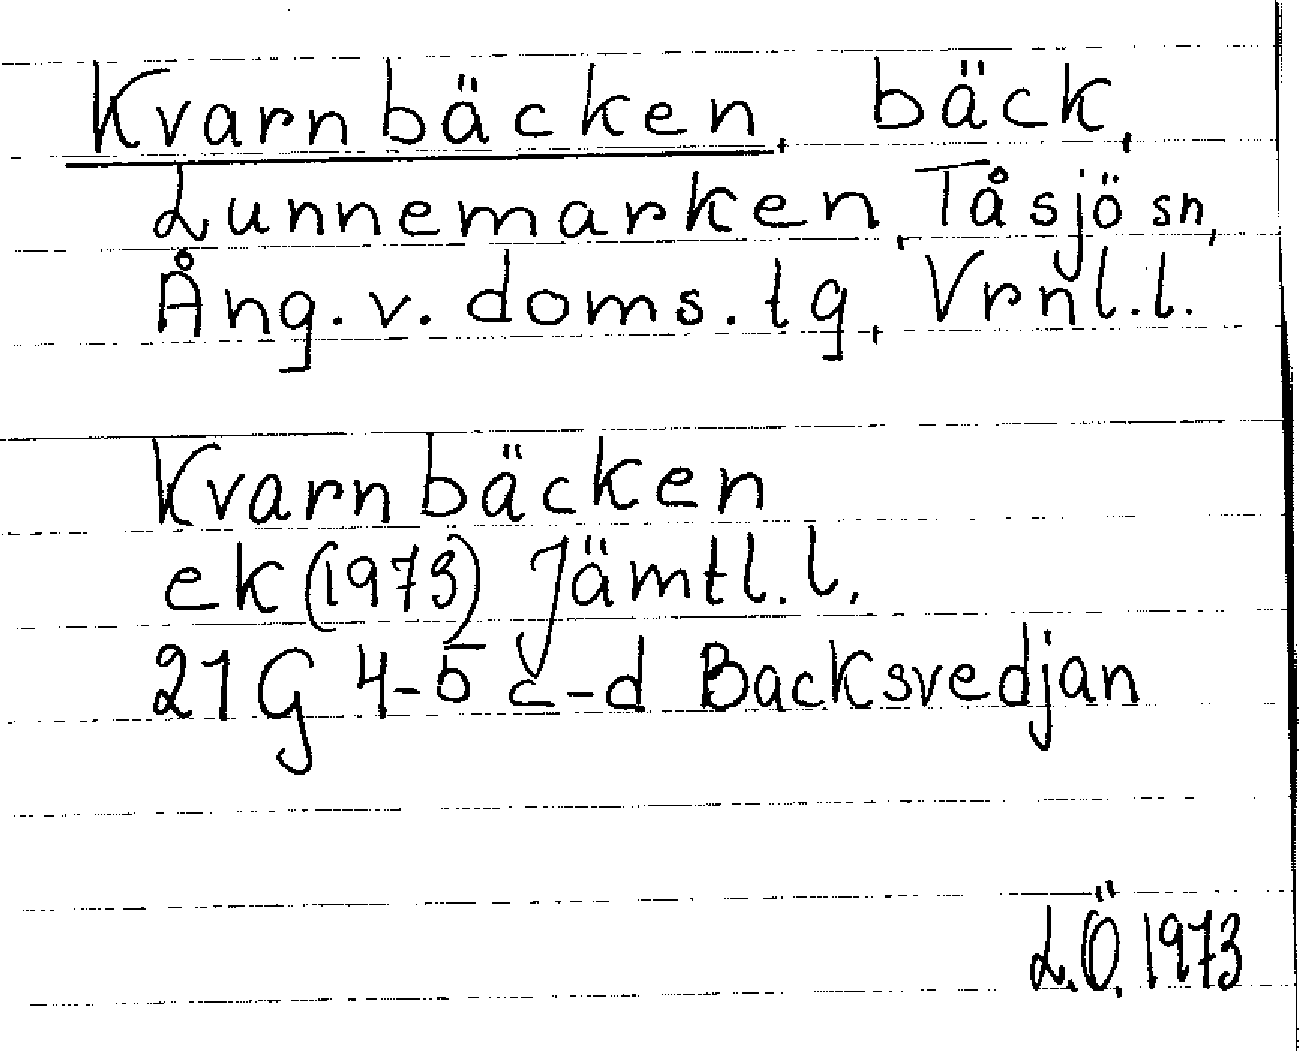 Kvarnbäcken, bäck,
Lunnemarken, Tåsjö sn,
Ång. v. doms. lg, Vrnl. l.
Kvarnbäcken
ek (1973) Jämtl. l.
21 G 4-5 c-d Backsvedjan
L.Ö. 1973